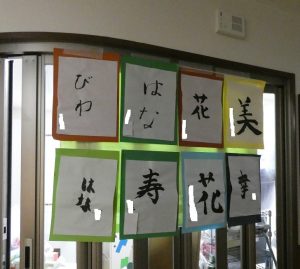 びわ
はな
花
美
はな
寿
花